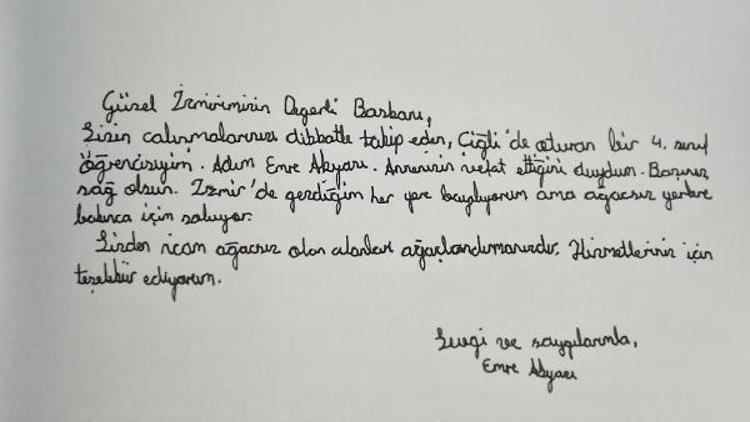 Güzel İzmirimizin Değerli Başkanı,
Sizin çalışmalarınızı dikkatle takip eden, Çiğli'de oturan bir 4. sınıf
öğrencisiyim. Adım Emre Akyarı. Annenizin vefat ettiğini duydum. Başınız
sağ olsun. İzmir'de gezdiğim her yere bayılıyorum ama ağaçsız yerlere
bakınca içim soluyor.
Sizden ricam ağaçsız olan alanları ağaçlandırmanızdır. Hizmetleriniz için
teşekkür ediyorum.
Sevgi ve saygılarımla,
Emre Akyarı